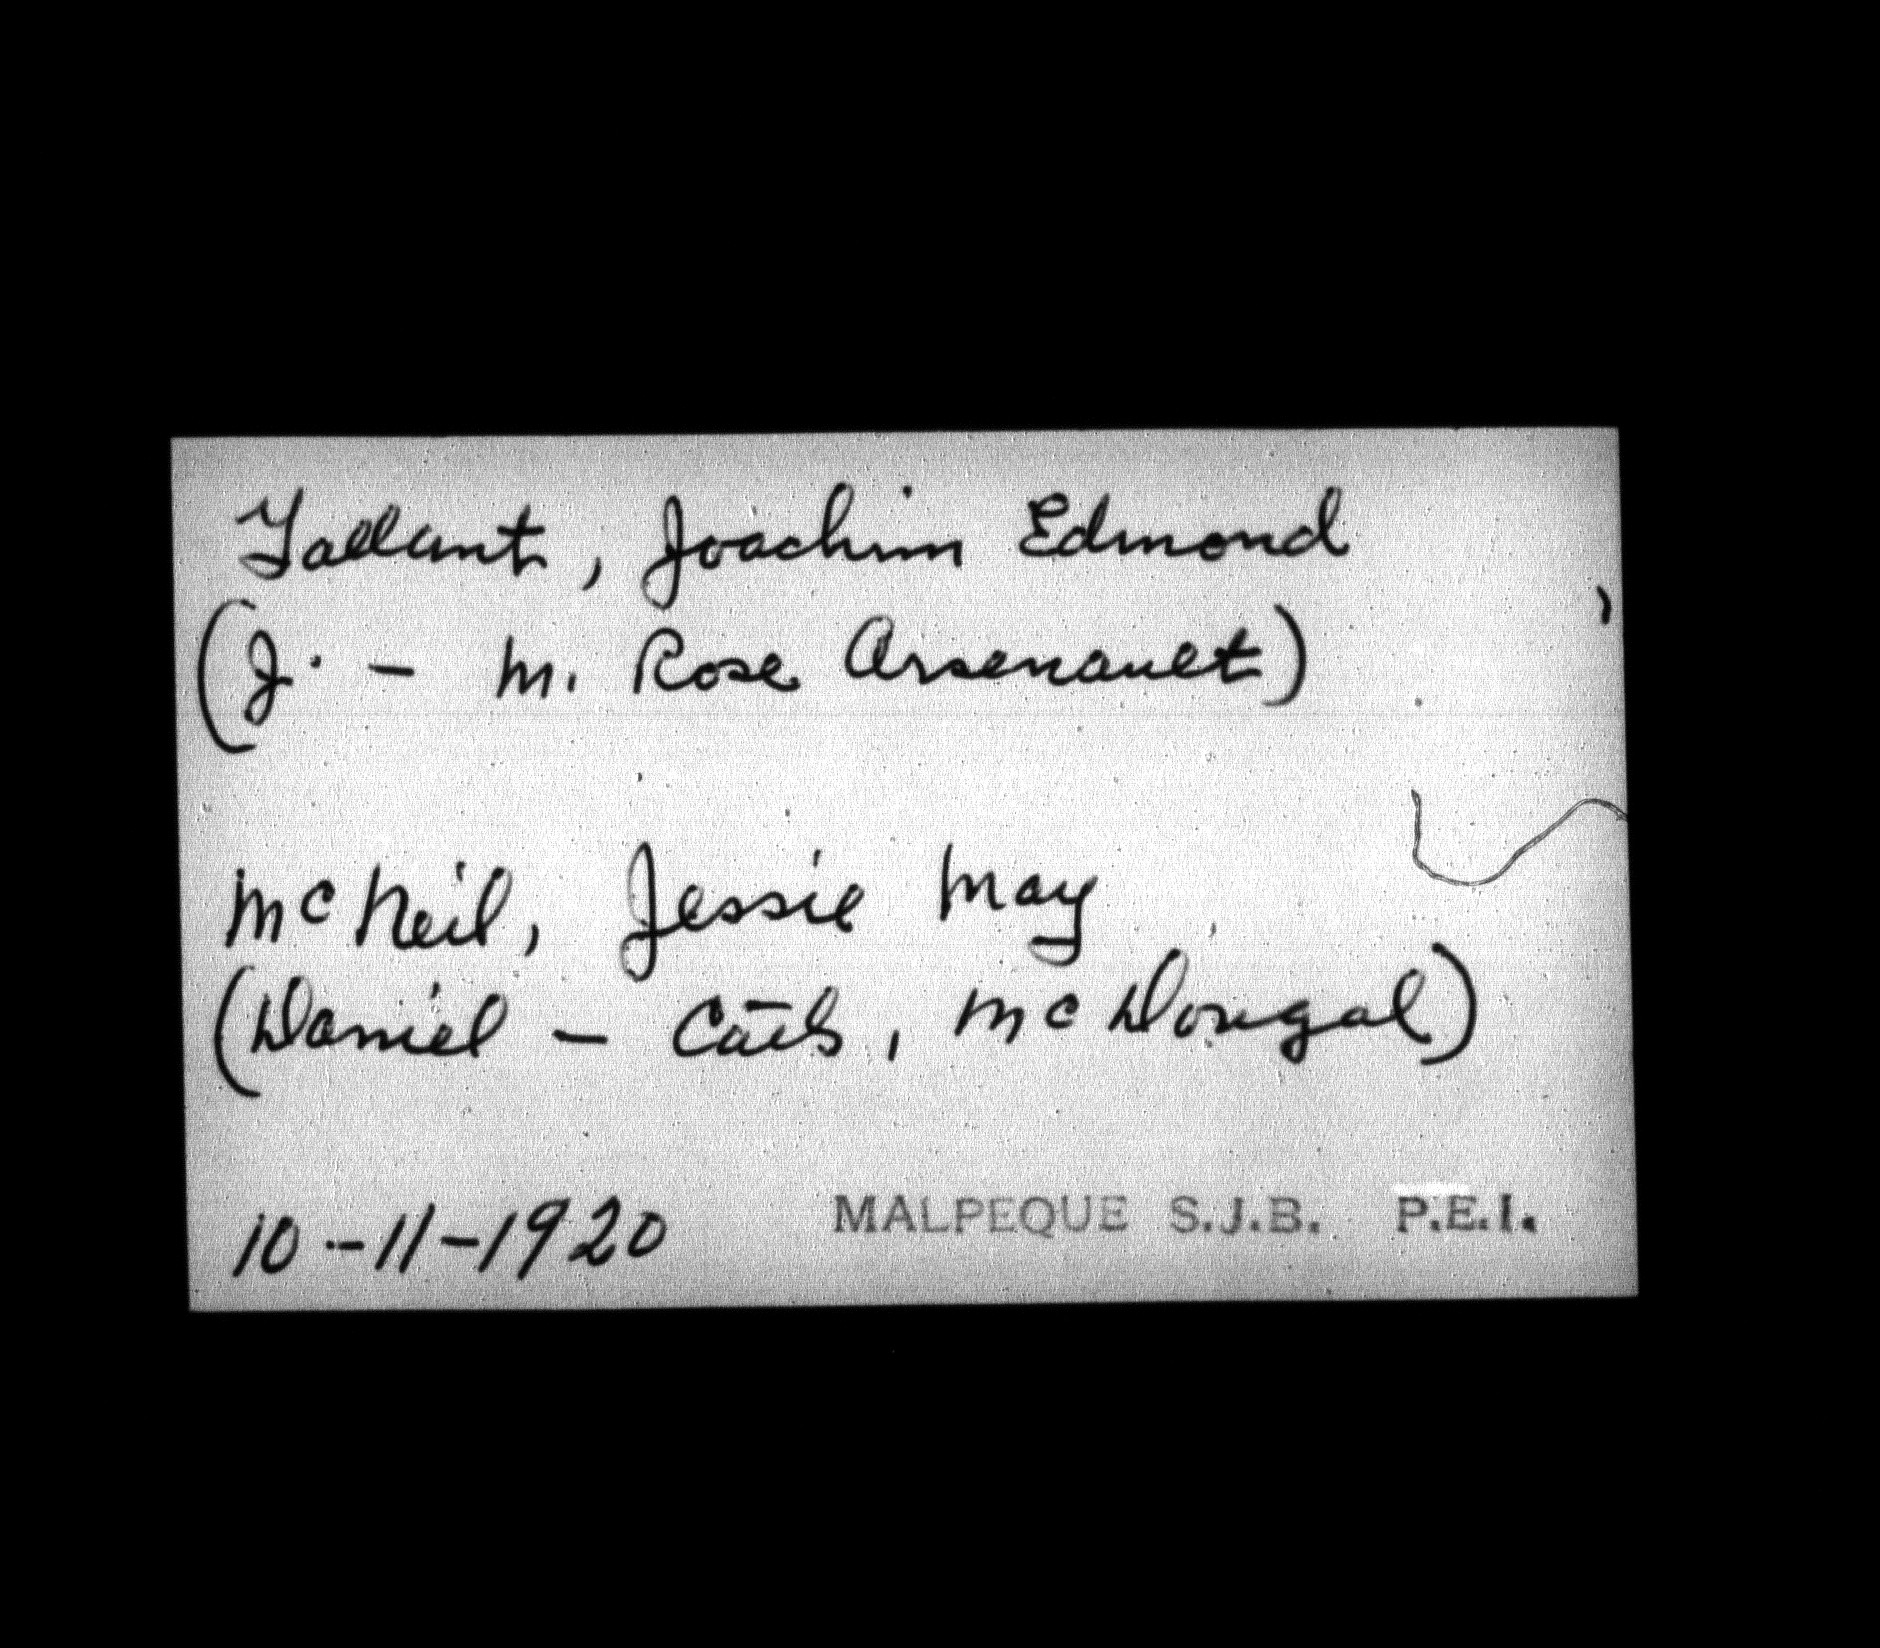 Gallant, Joachim Edmond
(J. - M. Rose Arsenault)
McNeil, Jessie May
(Daniel - Cath, McDougal)
10-11-1920 MALPEQUE S.J.B. P.E.I.